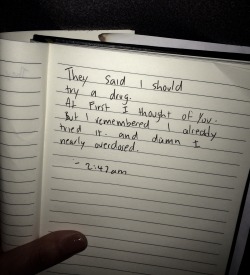 They said I should
try a drug.
At first I thought of you.
But I remembered I already
tried it. and damn I
nearly overdosed.
- 2:42am